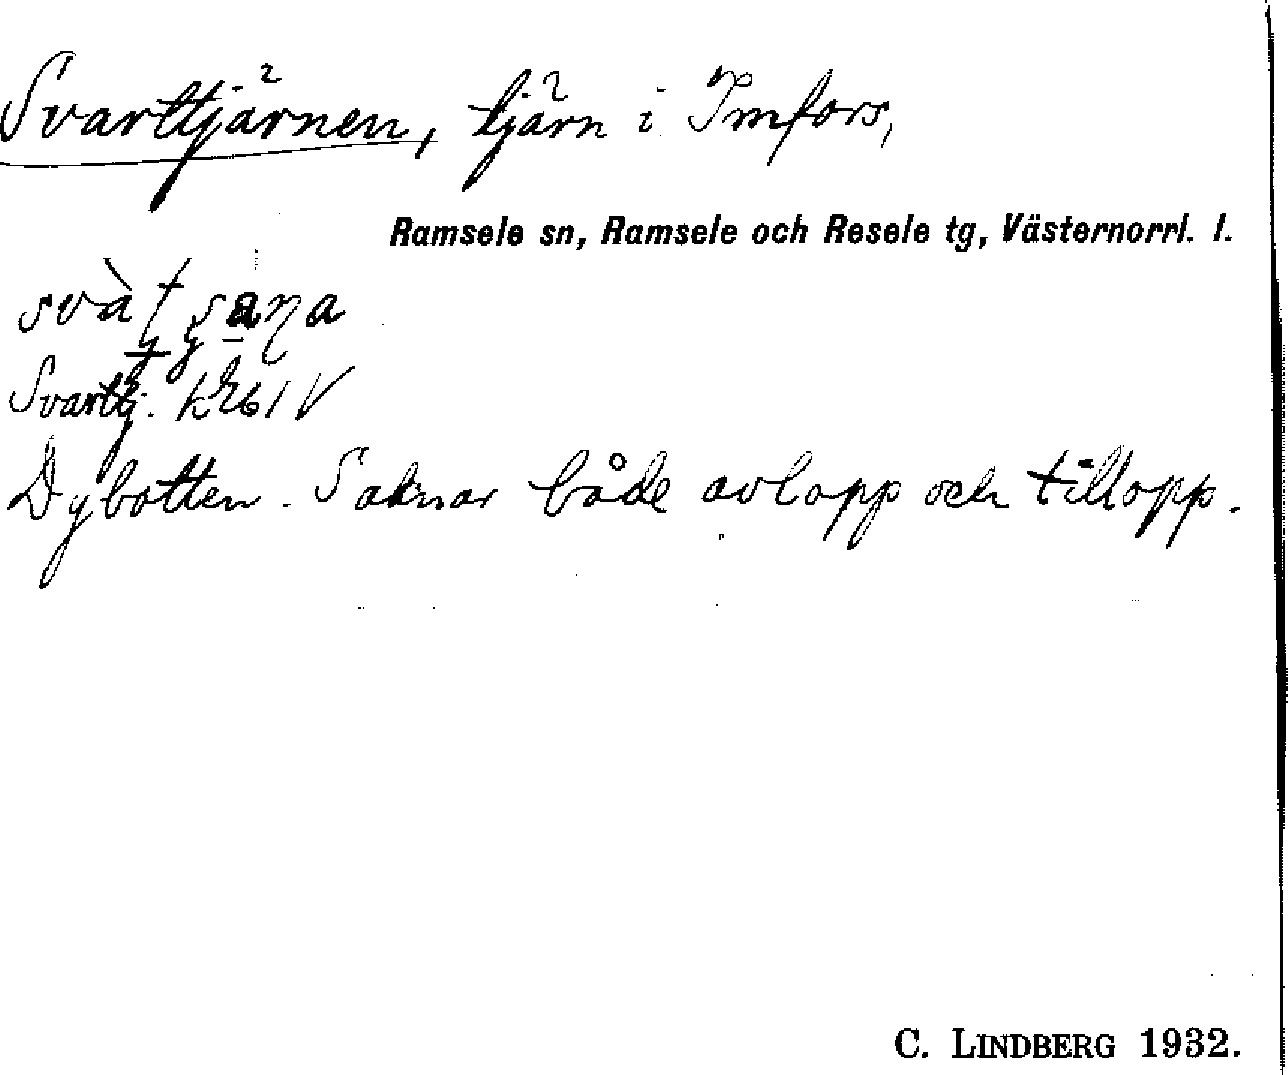 Svarttjärnen, tjärn i Imfors,
Ramsele sn, Ramsele och Resele tg, Västernorrl. l.
Svarttj. k261 V
Dybotten. Saknar både avlopp och tillopp.
C. LINDBERG 1932.